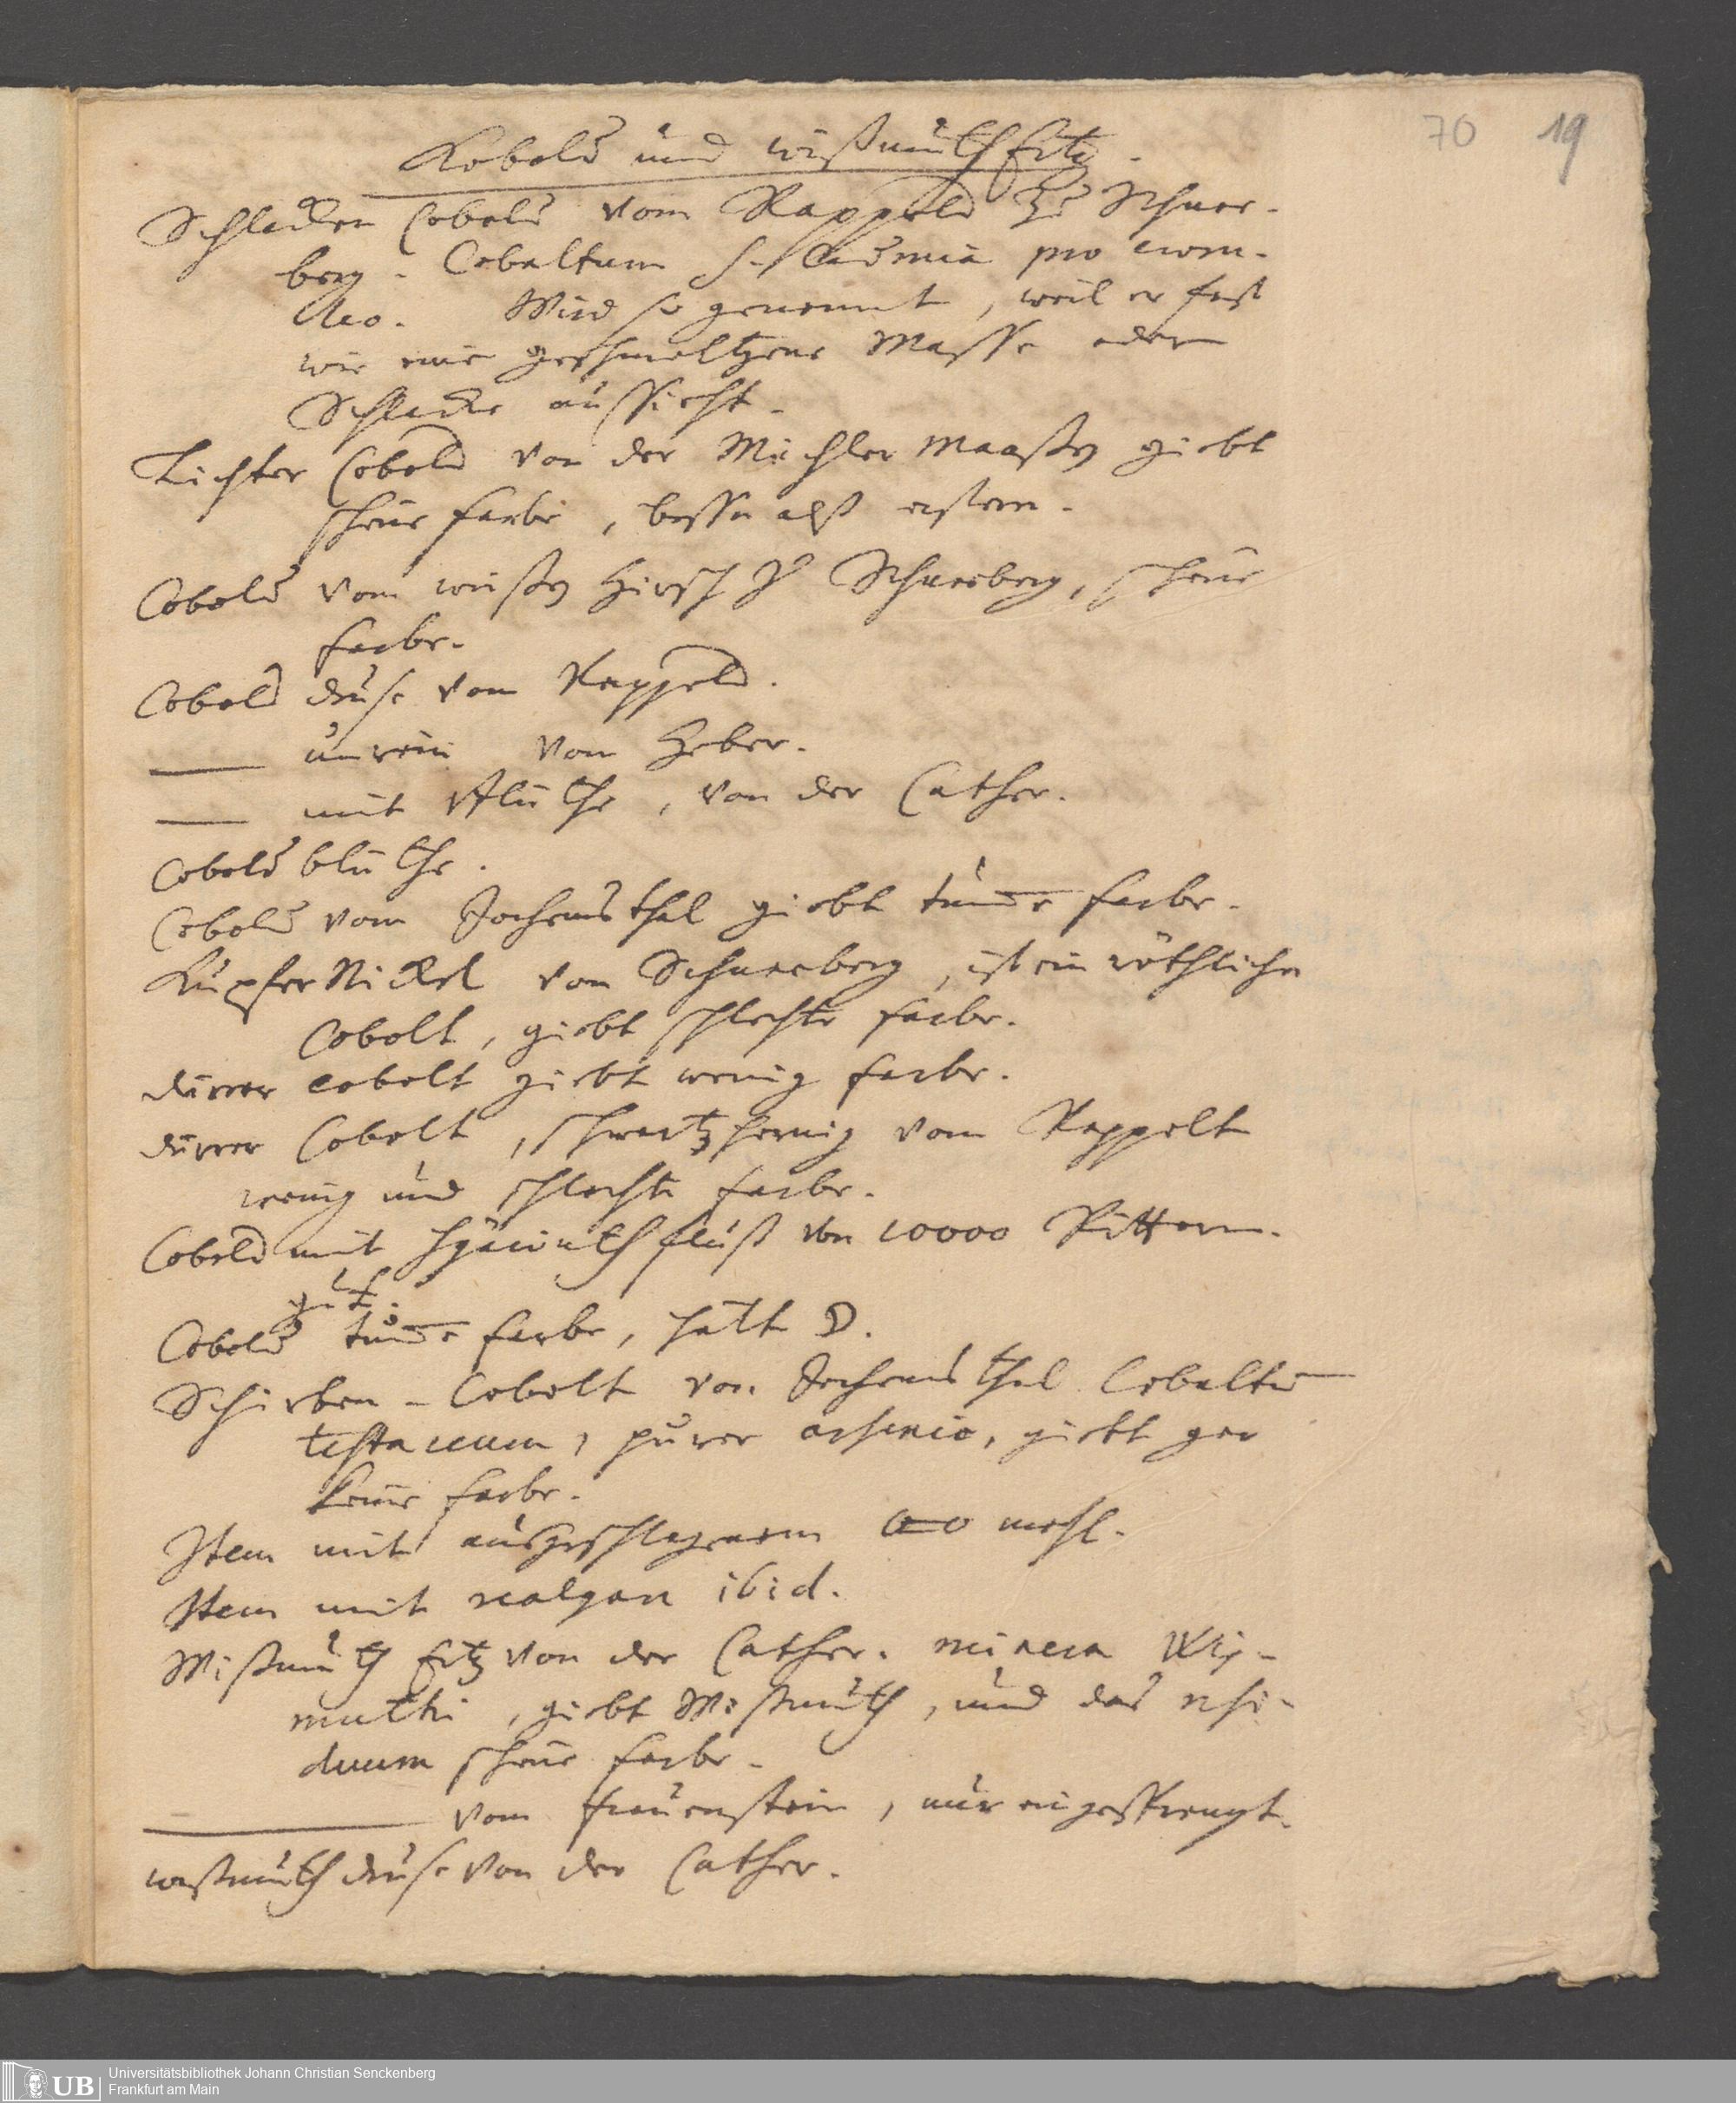 70 19
Kobold und wißmuth Ertz.
Schlacken Cobold vom Rappold zu Schnee-
berg. Cobaltum s. Cadmia pro coeru-
leo. Wird so genennt, weil er fast
wie eine geschmeltzene Masse oder
Schlacke aussieht.
Lichter Cobold von der Michler Maaßen giebt
schöne farbe, besser alß erstern.
Cobold vom weißen Hirsch zu Schneeberg, schöne
farbe.
Cobold druse vom Rappold.
____ unrein vom Heber.
____ mit Blüthe, von der Cather.
Cobold blüthe.
Cobold vom Jochemsthal giebt farbe.
Kupfer Nickel vom Schneeberg, ist ein röthlicher
Cobolt, giebt schlechte farbe.
dürrer cobolt giebt wenig farbe.
dürrer Cobolt, vom Rappolt
wenig und schlechte farbe.
Cobold mit Hyacinth fluß von 10000 Rittern.
gut.
Cobold farbe, hält ☽.
Schirben-Cobolt von Jochemsthal Cobaltū
testaceum, purer arsenic, giebt gar
keine farbe.
Item mit ausgeschlagenem mehl.
Item mit realgar ibid.
Wißmuth Ertz von der Cather. minera Wis-
muthi, giebt Wißmuth, und das resi-
duum schöne farbe.
____ vom frauenstein, nur eingesprengt.
wißmuth druse von der Cather.
UB
Universitätsbibliothek Johann Christian Senckenberg
Frankfurt am Main